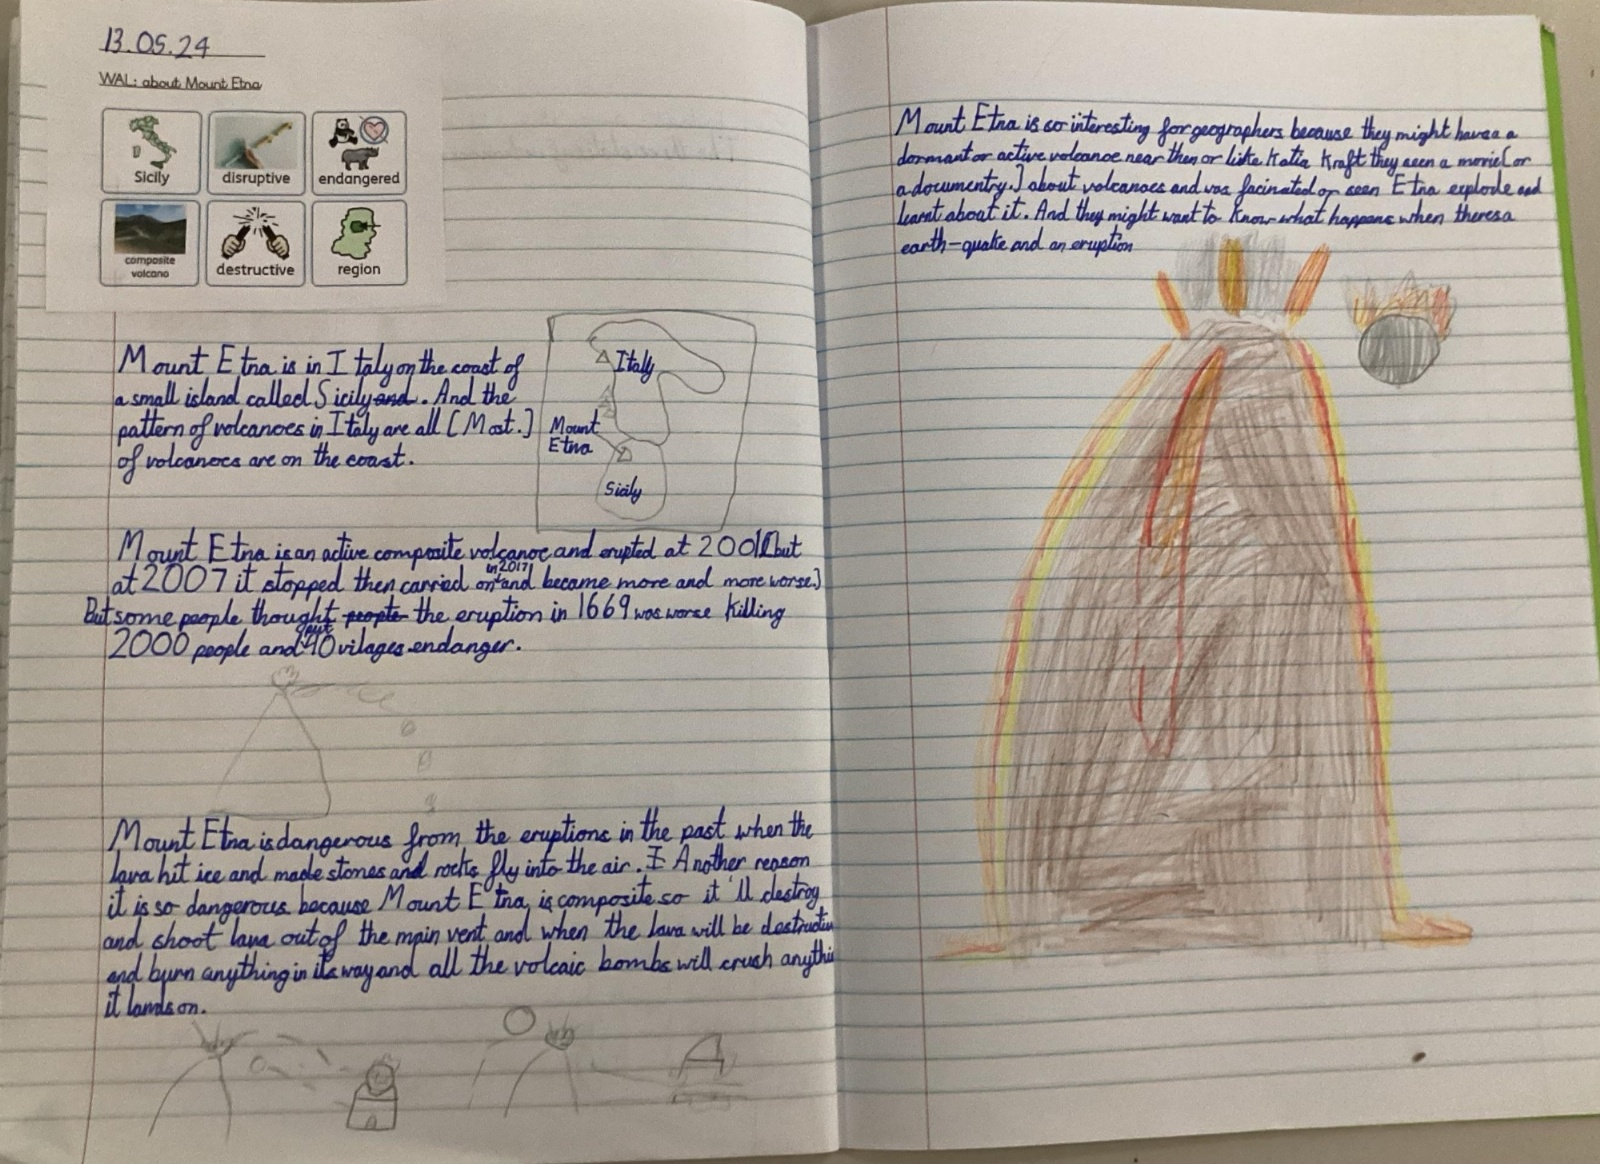 13.05.24
WAL: about Mount Etna
Sicily
disruptive
endangered
composite
volcano
destructive
region
Mount Etna is in Italy on the coast of
a small island called Sicily and. And the
pattern of volcanoes in Italy are all [Most.]
of volcanoes are on the coast.
Italy
Mount
Etna
Sicily
Mount Etna is an active composite volcanoe and erupted at 2001[but
in 2017
at 2007 it stopped then carried on and became more and more worse.]
But some people thought people the eruption in 1669 was worse killing
put
2000 people and 40 vilages endanger.
Mount Etna is dangerous from the eruptions in the past when the
lava hit ice and made stones and rocks fly into the air. I Another reason
it is so dangerous because Mount Etna is composite so it'll destroy
and shoot lava out of the main vent and when the lava will be
and burn anything in its way and all the volcaic bombs will crush
it lands on.
Mount Etna is so interesting for geographers because they might a
dormant or active volcanoe near them or like Katia Kraft they seen a movie[or
a documentry.] about volcanoes and was facinated or seen Etna explode and
learnt about it. And they might want to know what happens when theres a
earth-quake and an eruption